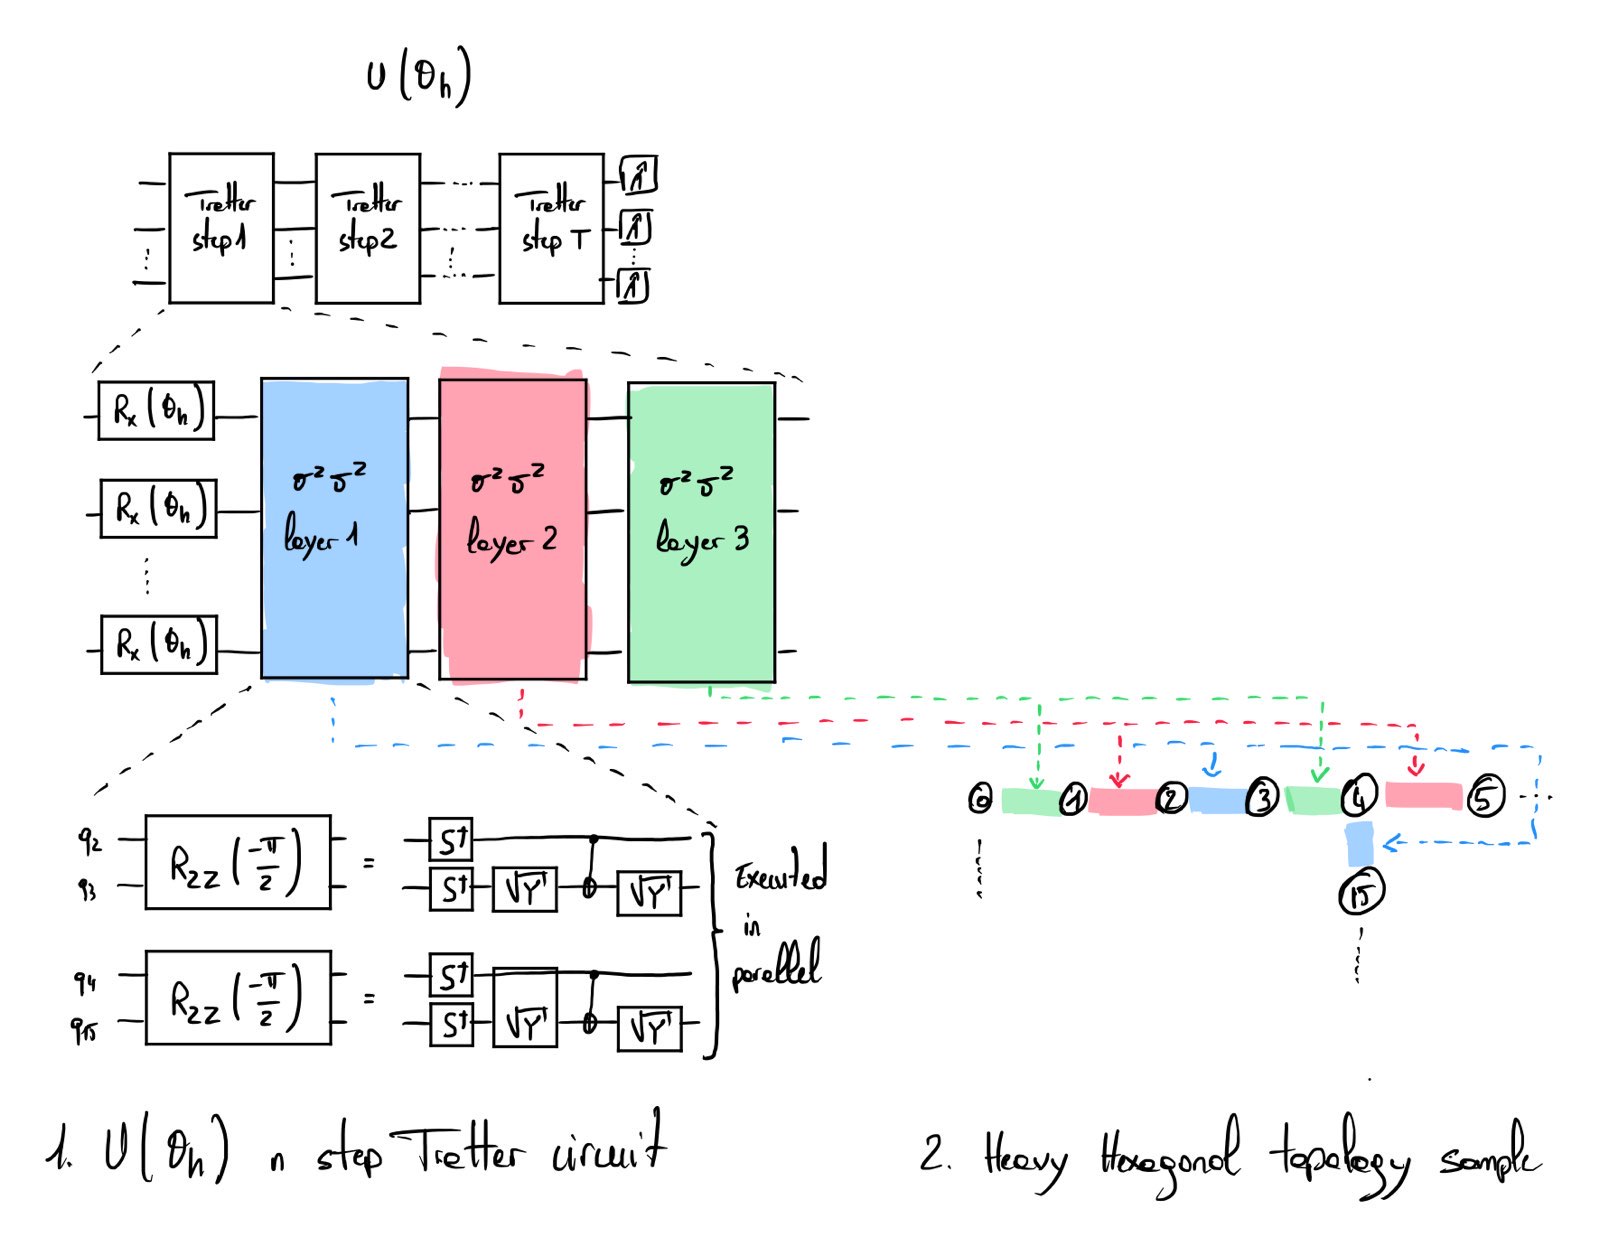 U(θh)
Trotter
step 1
Trotter
step 2
Trotter
step T
Rx(θh)
Rx(θh)
Rx(θh)
σ²σ²
layer 1
σ²σ²
layer 2
σ²σ²
layer 3
0 1 2 3 4 5
15
q2
q3
Rzz(-π/2) =
S†
S† √Y† √Y†
q4
q15
Rzz(-π/2) =
S†
S† √Y† √Y†
Executed
in
parallel
1. U(θh) n step Trotter circuit
2. Heavy Hexagonal topology sample